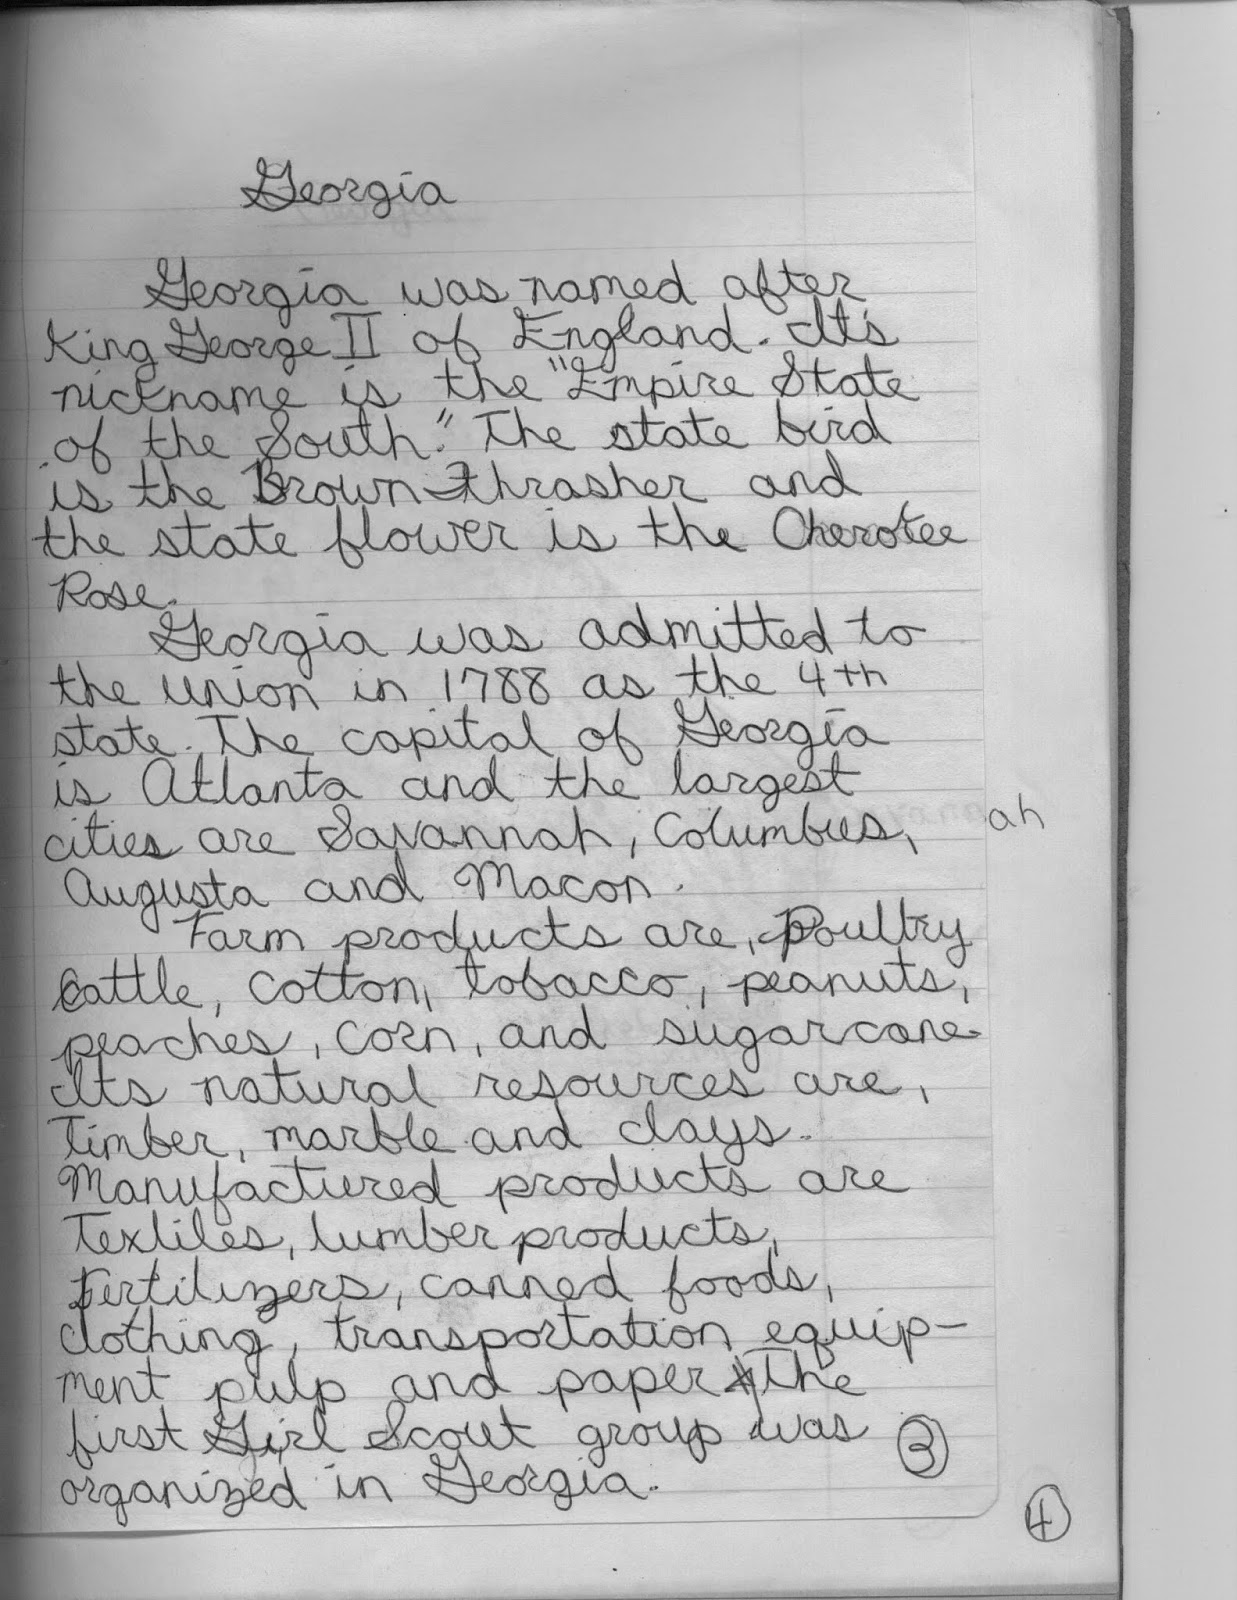 Georgia
Georgia was named after
King George II of England. It's
nickname is the "Empire State
of the South." The state bird
is the Brown Thrasher and
the state flower is the Cherokee
Rose.
Georgia was admitted to
the union in 1788 as the 4th
state. The capital of Georgia
is Atlanta and the largest
cities are Savannah, Columbus, ah
Augusta and Macon.
Farm products are, Poultry
Cattle, cotton, tobacco, peanuts,
peaches, corn, and sugarcane
Its natural resources are,
Timber, marble and clays.
Manufactured products are
Textiles, lumber products,
Fertilizers, canned foods,
clothing, transportation equip-
ment pulp and paper The
first Girl Scout group was
organized in Georgia.
3
4